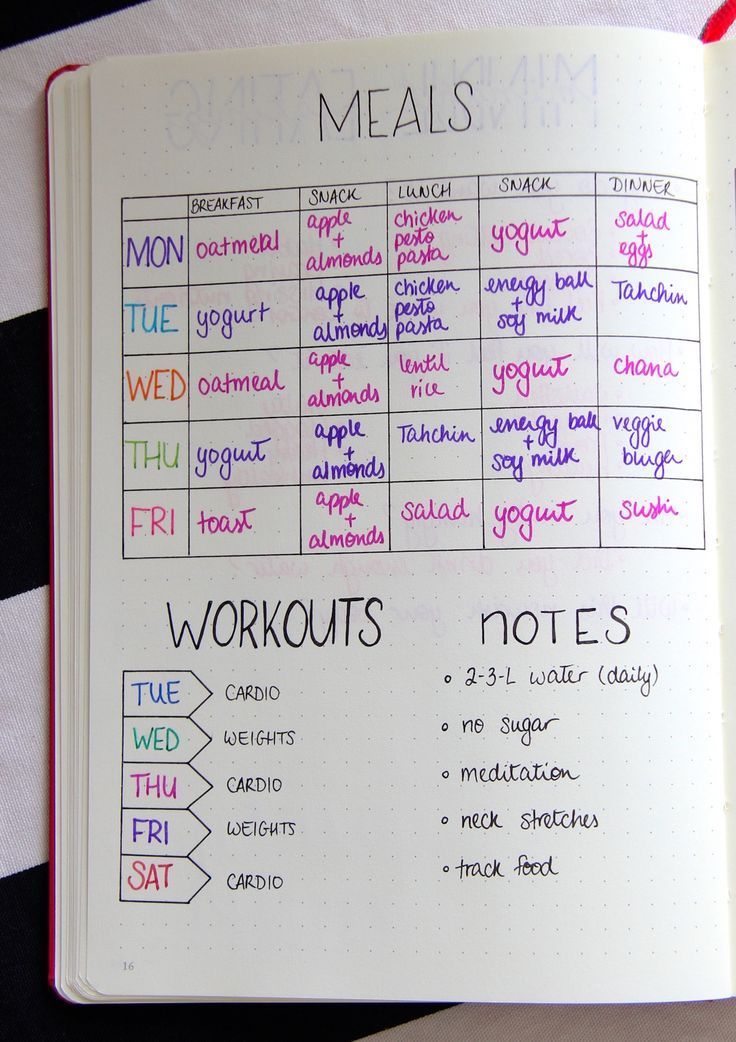 MEALS
BREAKFAST SNACK LUNCH SNACK DINNER
MON oatmeal apple + almonds chicken pesto pasta yogurt salad + eggs
TUE yogurt apple + almonds chicken pesto pasta energy ball + soy milk Tahchin
WED oatmeal apple + almonds lentil rice yogurt chana
THU yogurt apple + almonds Tahchin energy ball + soy milk veggie burger
FRI toast apple + almonds salad yogurt sushi
WORKOUTS
TUE CARDIO
WED WEIGHTS
THU CARDIO
FRI WEIGHTS
SAT CARDIO
NOTES
• 2-3-L water (daily)
• no sugar
• meditation
• neck stretches
• track food
16